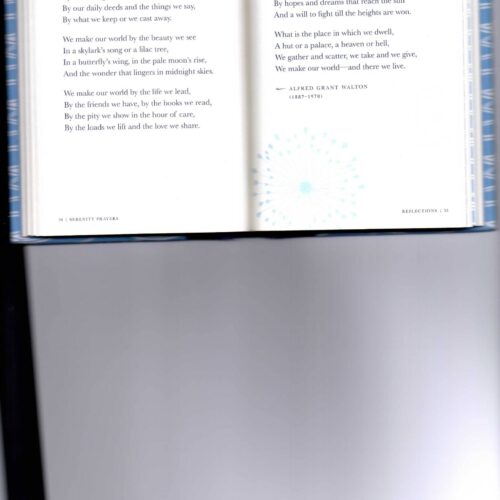 By our daily deeds and the things we say,
By what we keep or we cast away.
We make our world by the beauty we see
In a skylark's song or a lilac tree,
In a butterfly's wing, in the pale moon's rise,
And the wonder that lingers in midnight skies.
We make our world by the life we lead,
By the friends we have, by the books we read,
By the pity we show in the hour of care,
By the loads we lift and the love we share.
SERENITY PRAYERS
By hopes and dreams that reach the sun
And a will to fight till the heights are won.
What is the place in which we dwell,
A hut or a palace, a heaven or hell,
We gather and scatter, we take and we give,
We make our world—and there we live.
— ALFRED GRANT WALTON
(1887–1970)
REFLECTIONS